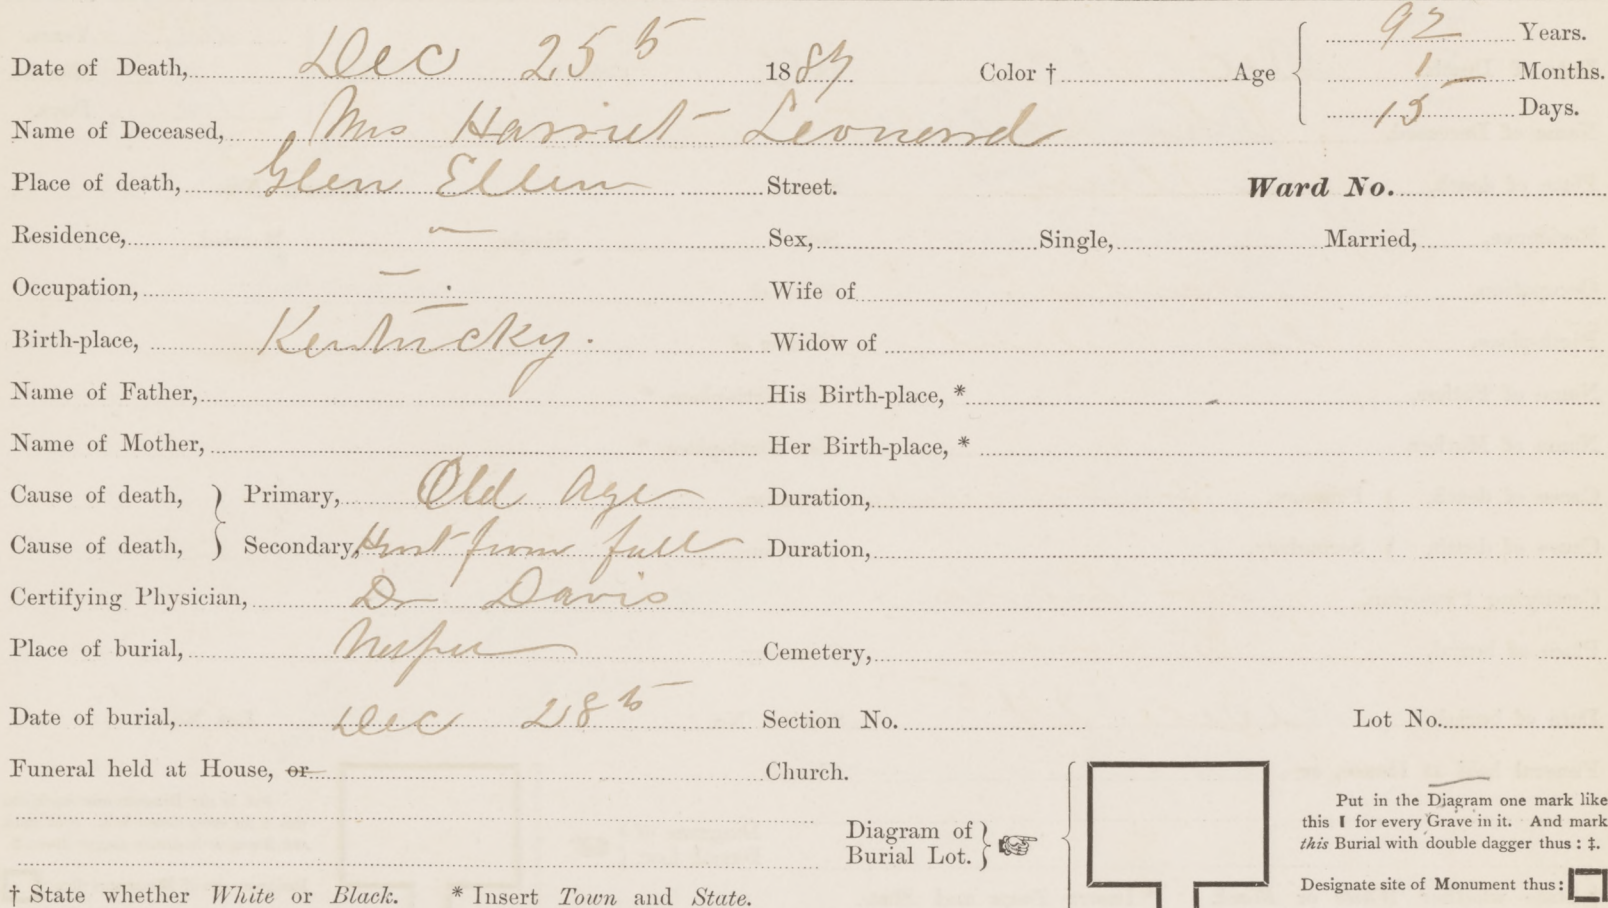 92 Years.
Date of Death, Dec 25th 1889 Color † Age 1 Months.
15 Days.
Name of Deceased, Mrs Harriet Leonard
Place of death, Glen Ellen Street. Ward No.
Residence, — Sex, Single, Married,
Occupation, — Wife of
Birth-place, Kentucky. Widow of
Name of Father, His Birth-place, *
Name of Mother, Her Birth-place, *
Cause of death, } Primary, Old Age Duration,
Cause of death, } Secondary, Hurt from fall Duration,
Certifying Physician, Dr Davis
Place of burial, Cemetery,
Date of burial, Dec 28th Section No. Lot No.
Funeral held at House, or Church.
Put in the Diagram one mark like
this I for every Grave in it. And mark
this Burial with double dagger thus : ‡.
Diagram of
Burial Lot. }
Designate site of Monument thus:
† State whether White or Black. * Insert Town and State.